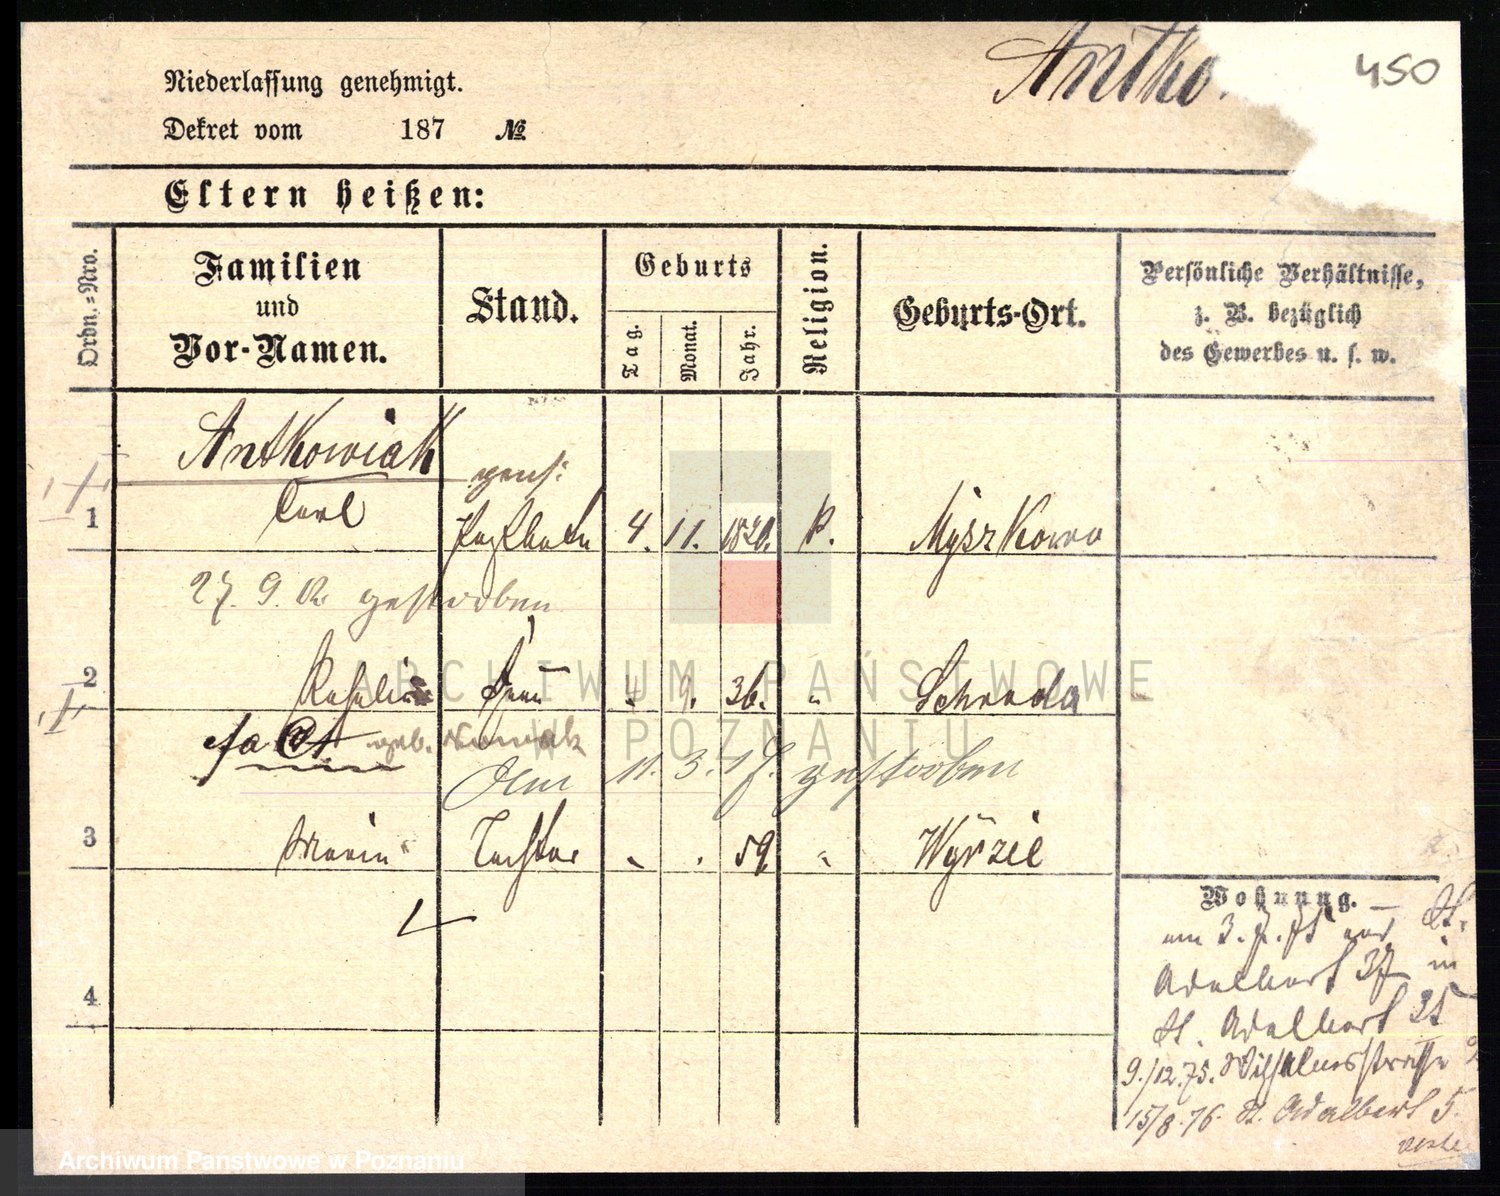 Antko
450
Niederlassung genehmigt.
Dekret vom 187 №
Eltern heißen:
Ordn.=Nro.
Familien
und
Vor-Namen.
Stand.
Geburts
Tag.
Monat.
Jahr.
Religion.
Geburts-Ort.
Persönliche Verhältnisse,
z. B. bezüglich
des Gewerbes u. s. w.
Antkowiak
pens:
1 Carl 4. 11. 1820. k. Myszkowo
27. 9. gestorben
2 Frau 4 9. 36. " Schroda
geb. Nowak
11. 3. 17. gestorben
3 Maria Tochter 59. " Wyrzie
4
Wohnung.
am 3. 7. 75 von St.
Adalbert 37 in
St. Adalbert 35
9./12.75. Wilhelmsstrasse
15/8.76. St. Adalbert 5.
ARCHIWUM PAŃSTWOWE
W POZNANIU
Archiwum Państwowe w Poznaniu